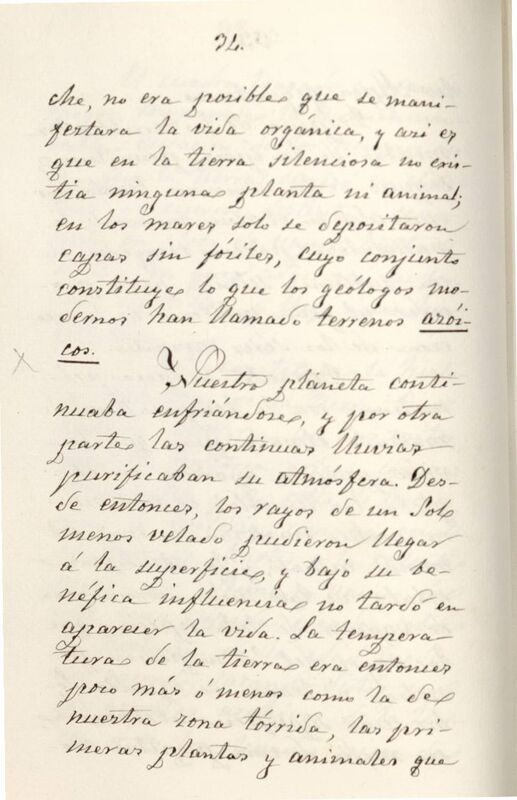 32.
che, no era posible que se mani-
festara la vida orgánica, y asi es
que en la tierra silenciosa no exis-
tia ninguna planta ni animal;
en los mares solo se depositaron
capas sin fósiles, cuyo conjunto
constituye lo que los geólogos mo-
dernos han llamado terrenos azói-
cos.
Nuestro planeta conti-
nuaba enfriándose, y por otra
parte las continuas lluvias
purificaban su atmósfera. Des-
de entonces, los rayos de un Sol
menos velado pudieron llegar
á la superficie, y bajo su be-
néfica influencia no tardó en
aparecer la vida. La tempera-
tura de la tierra era entonces
poco más ó menos como la de
nuestra zona tórrida, las pri-
meras plantas y animales que